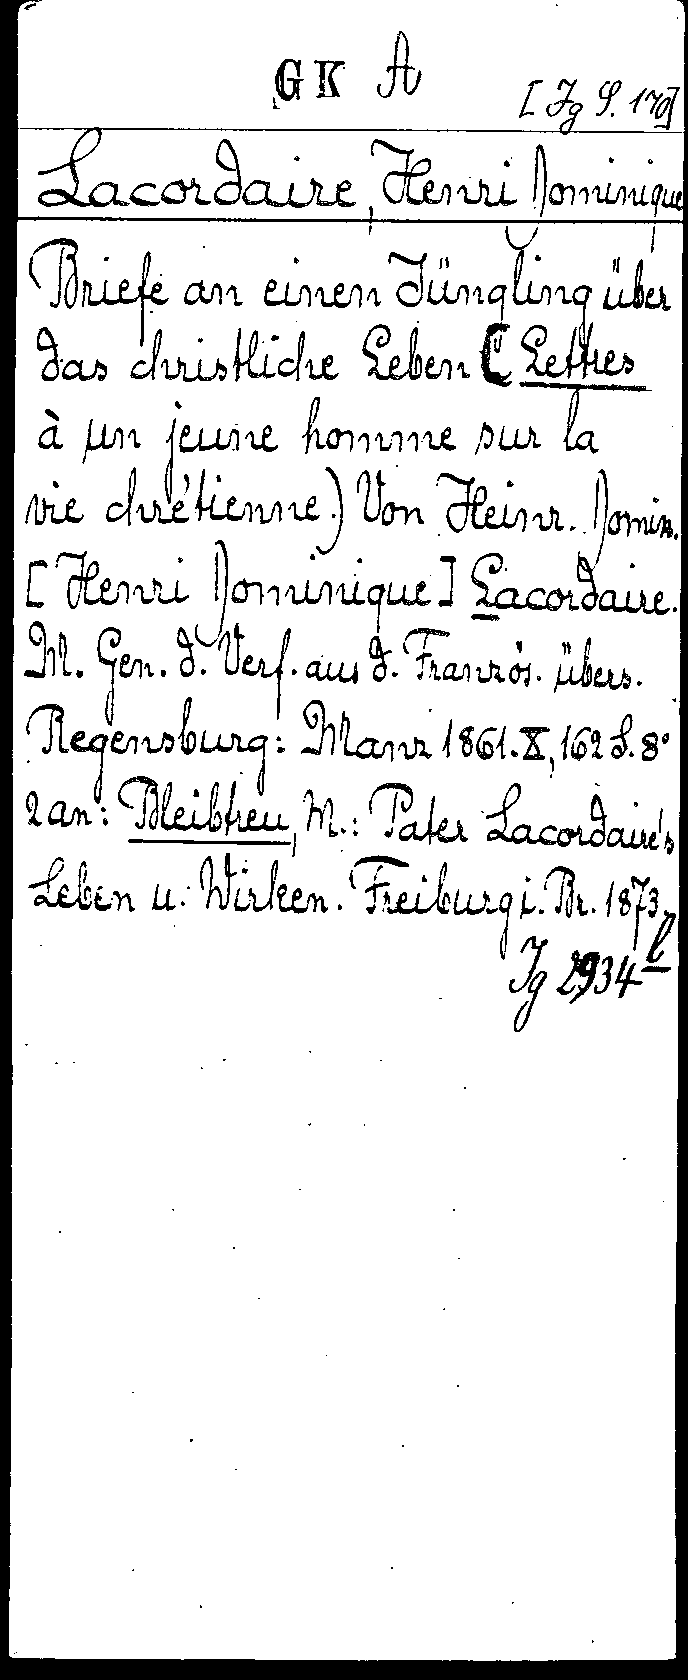 GK A
[Jg S. 170]
Lacordaire, Henri Dominique
Briefe an einen Jüngling über
das christliche Leben (Lettres
à un jeune homme sur la
vie chrétienne.) Von Heinr. Domin.
[Henri Dominique] Lacordaire.
M. Gen. d. Verf. aus d. Französ. übers.
Regensburg: Manz 1861. X, 162 S. 8°
2 an: Bleibtreu, M.: Pater Lacordaire's
Leben u. Wirken. Freiburg i. Br. 1873.
Jg 2934 l